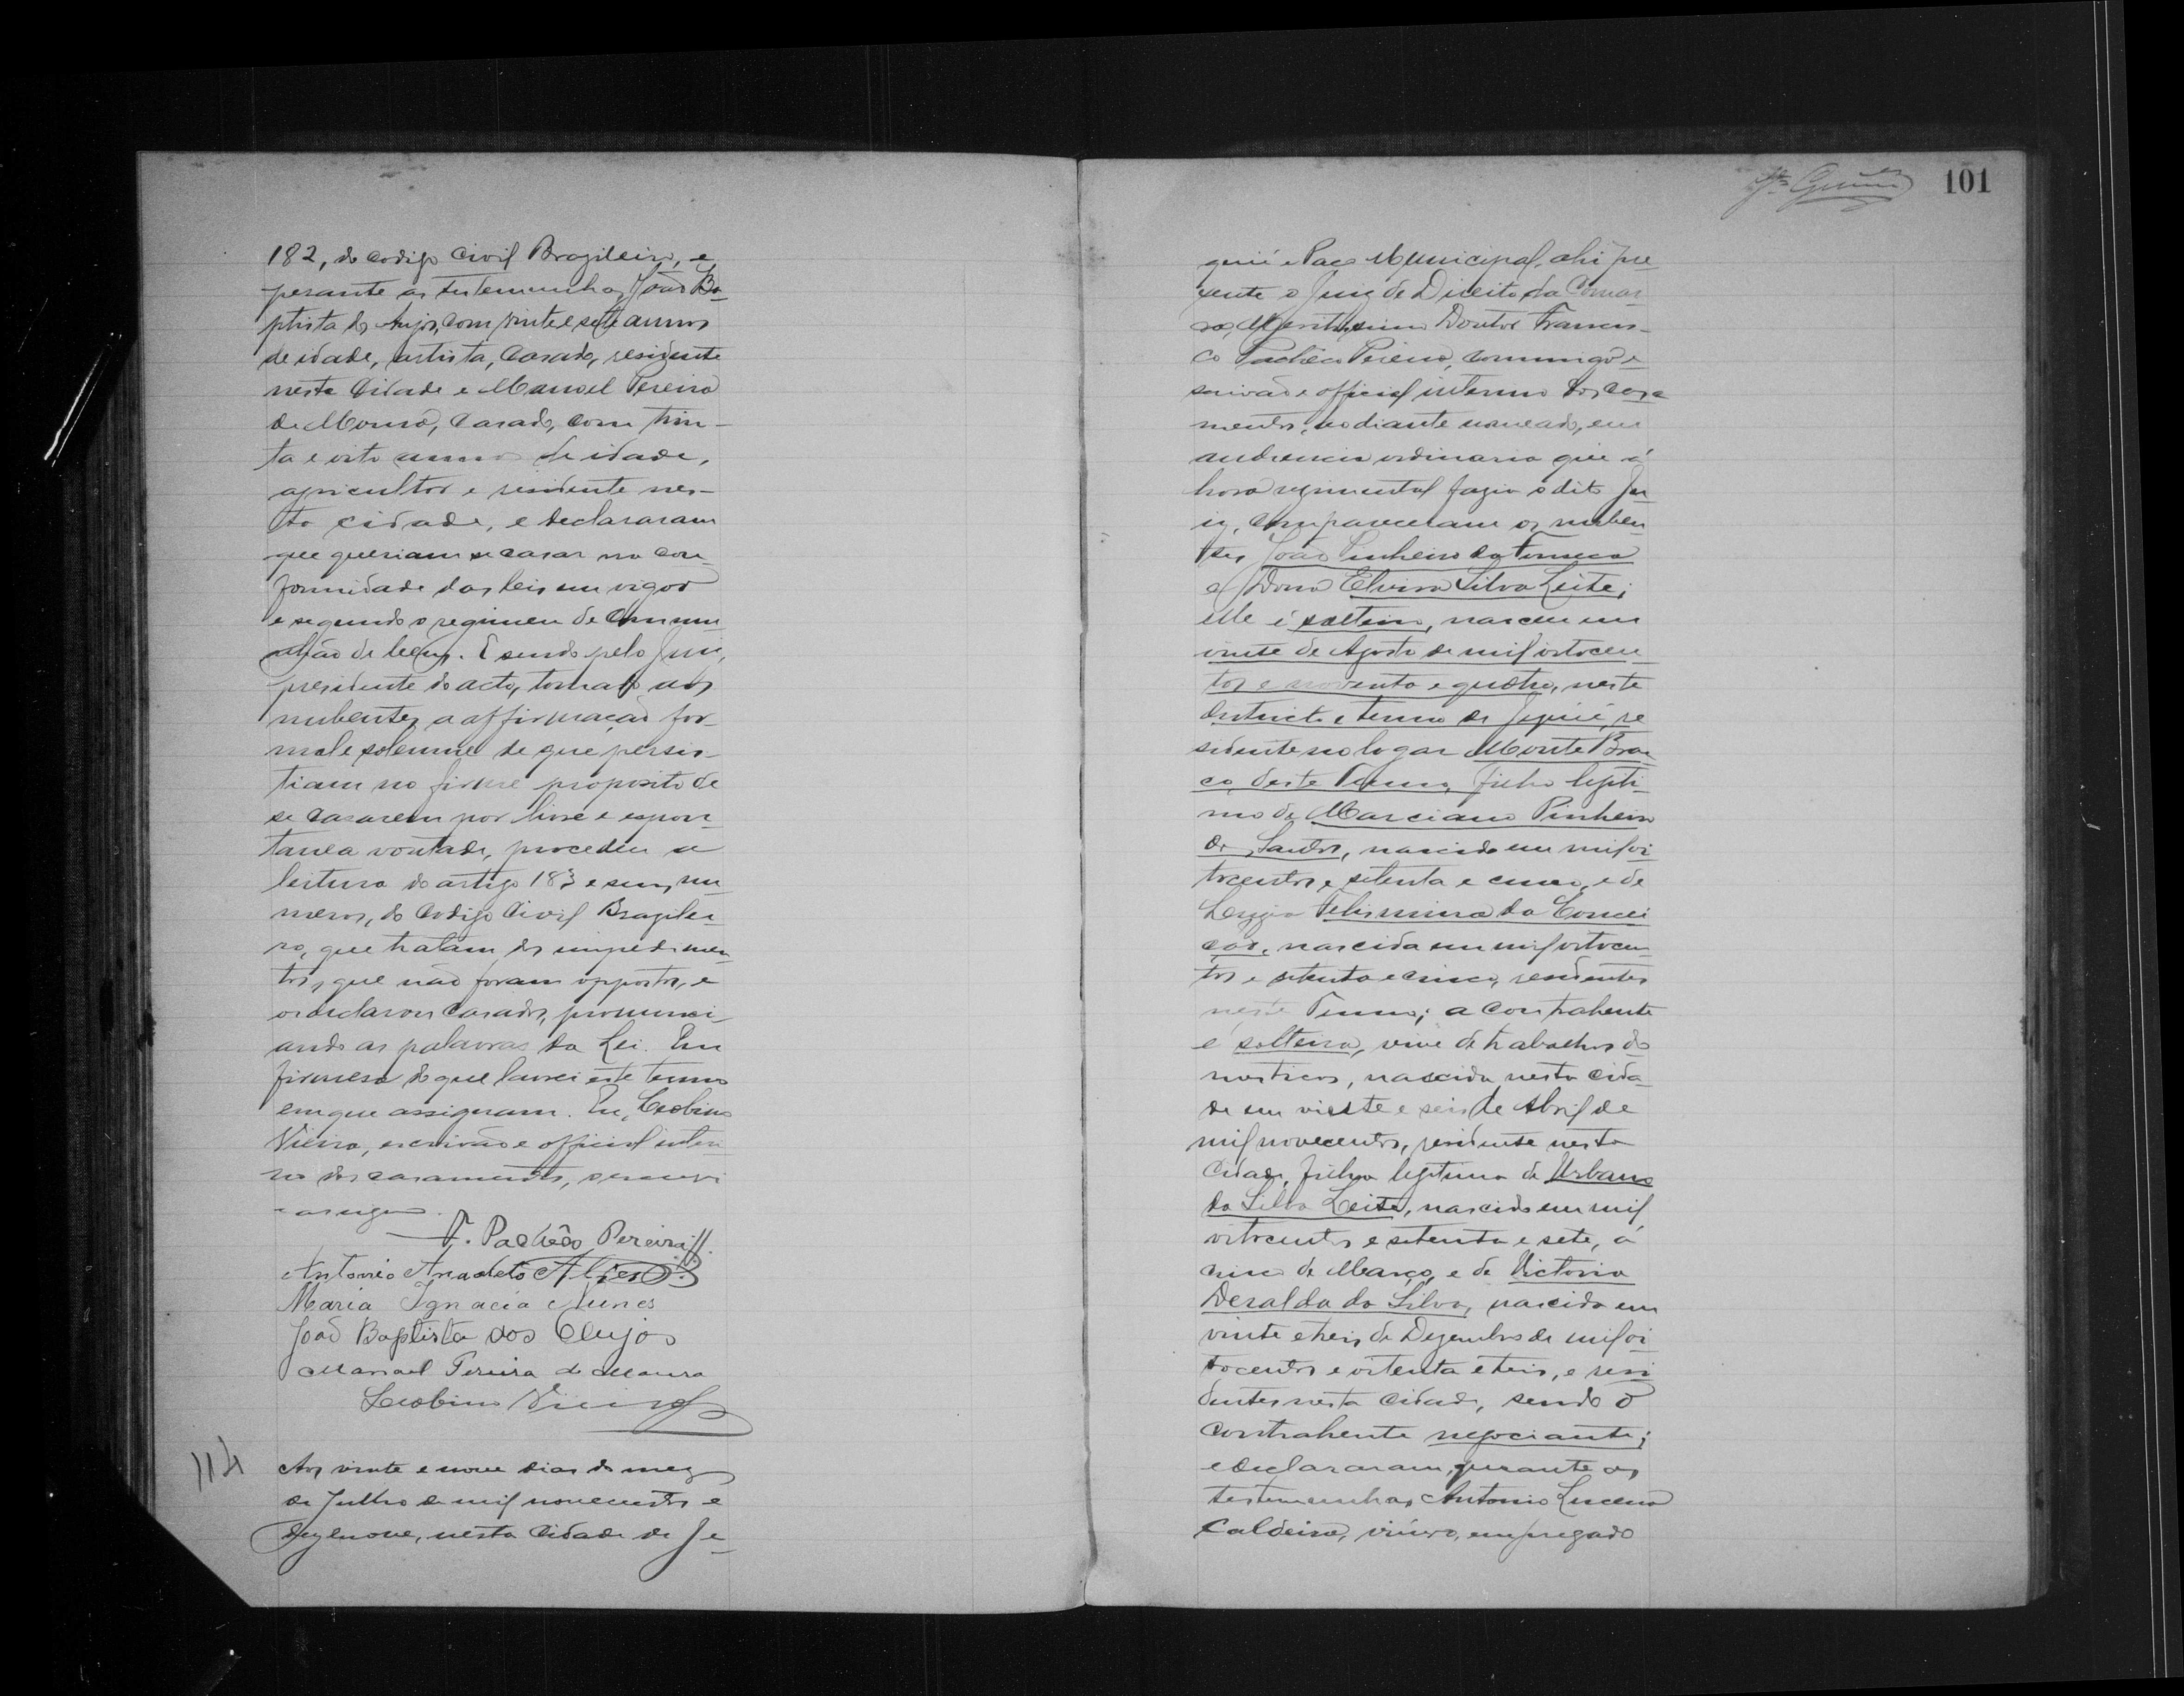 182, do Codigo Civil Brazileiro, e
perante as testemunhas João Ba-
ptista dos Anjos, com vinte e sete annos
de idade, artista, casado, residente
nesta Cidade e Manoel Pereira
de Moura, casado, com trin-
ta e oito annos de idade,
agricultor e residente nes-
ta cidade, e declararam
que queriam se casar na con-
formidade das leis em vigor
e segundo o regimen de Commu-
nhão de bens. E sendo pelo Juiz,
presidente do acto, tomada aos
nubentes a affirmação for-
mal e solemne de que persis-
tiam no firme proposito de
se casarem por livre e espon-
tanea vontade, procedeu a
leitura do artigo 183 e seus nu-
meros, do Codigo Civil Brazilei-
ro, que tratam dos impedimen-
tos, que não foram oppostos, e
os declarou casados, pronunci-
ando as palavras da Lei. Em
firmesa do que lavrei este termo
em que assignam. Eu, Leobino
Vieira, escrivão e official interi-
no dos casamentos, o escrevi
e assigno.
F. Pachêco Pereira
Antonio Anacleto Alves
Maria Ignacia Nunes
João Baptista dos Anjos
Manoel Pereira de Moura
Leobino Vieira
114
Aos vinte e nove dias do mez
de Julho de mil novecentos e
dezenove, nesta Cidade de Je-
101
quié e Paço Municipal, ahi pre-
sente o Juiz de Direito da Comar-
ca, Meritissimo Doutor Francis-
co Pachêco Pereira, commigo e-
scrivão e official interino dos casa-
mentos, no diante nomeado, em
audiencia ordinaria que á
hora regimental fazia o dito Ju-
iz, compareceram os nuben-
tes João Pinheiro da Fonseca
e Dona Elvira Silva Leite;
elle é solteiro, nasceu em
vinte de Agosto de mil oitocen-
tos e noventa e quatro, neste
districto e termo de Jequié, re-
sidente no logar Monte Bran-
co, deste Termo, filho legiti-
mo de Marciano Pinheiro
dos Santos, nascido em mil oi-
tocentos e setenta e cinco, e de
Felismina da Concei-
ção, nascida em mil oitocen-
tos e setenta e cinco, residentes
neste Termo; a contrahente
é solteira, vive de trabalhos do-
mesticos, nascida nesta cida-
de em vinte e seis de Abril de
mil novecentos, residente nesta
Cidade, filha legitima de Urbano
da Silva Leite, nascido em mil
oitocentos e setenta e sete, á
cinco de Março, e de Victoria
Deralda da Silva, nascida em
vinte e treis de Dezembro de mil oi-
tocentos e oitenta e treis, e resi-
dentes nesta Cidade, sendo o
contrahente negociante;
e declararam, perante as
testemunhas Antonio Lucena
Caldeira, viúvo, empregado